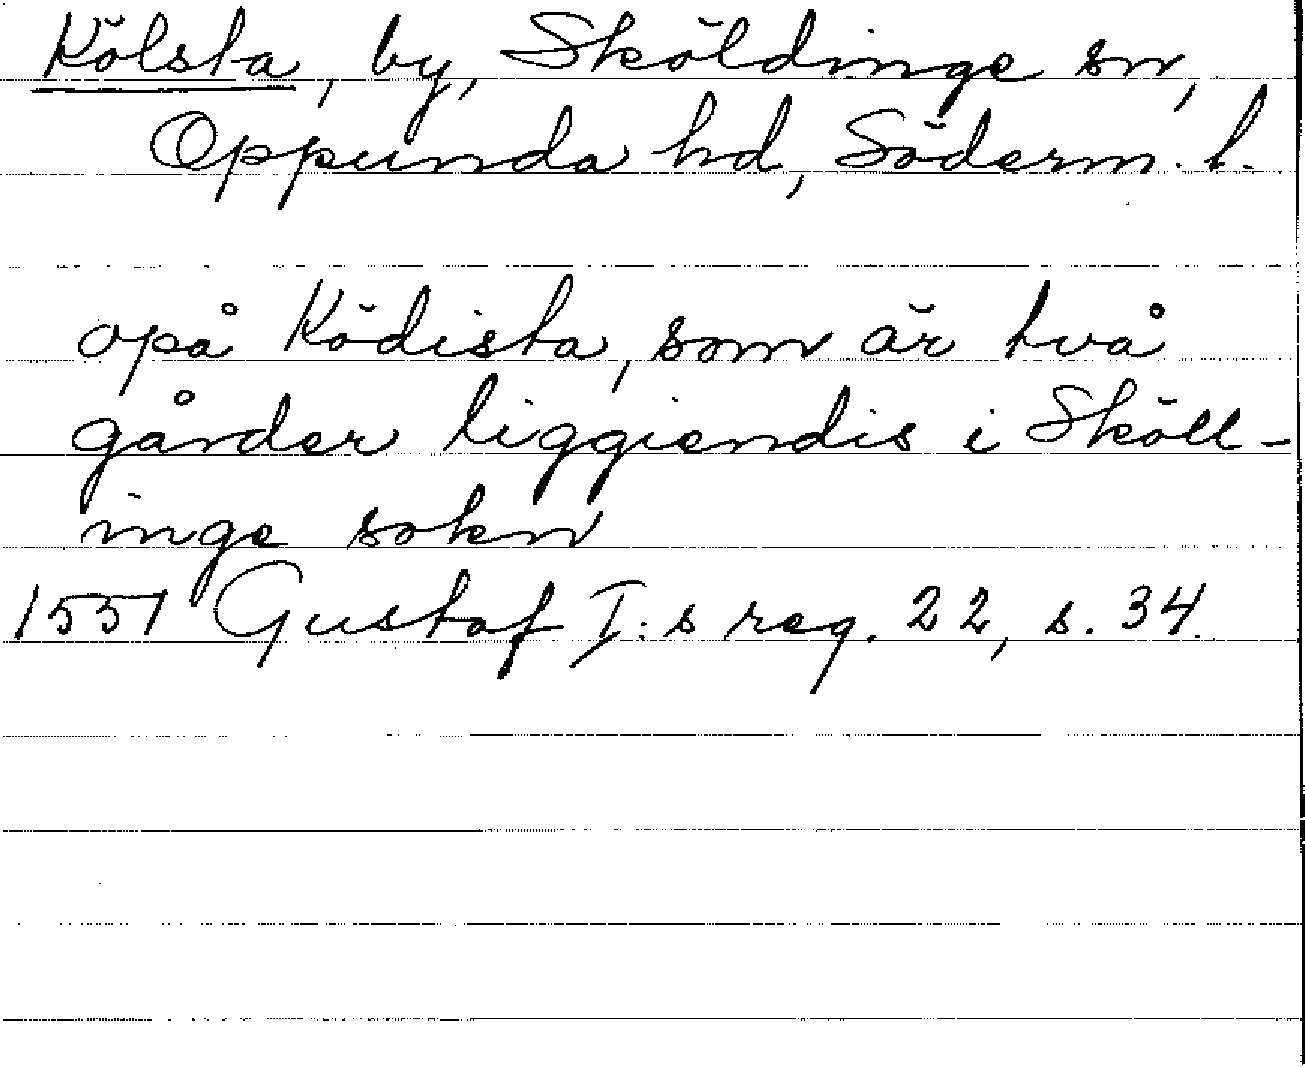 Kölsta, by, Sköldinge sn,
Oppunda hd, Söderm. l.
opå Ködista, som är två
gårder liggiendis i Sköll-
inge sokn
1551 Gustaf I:s reg. 22, s. 34.